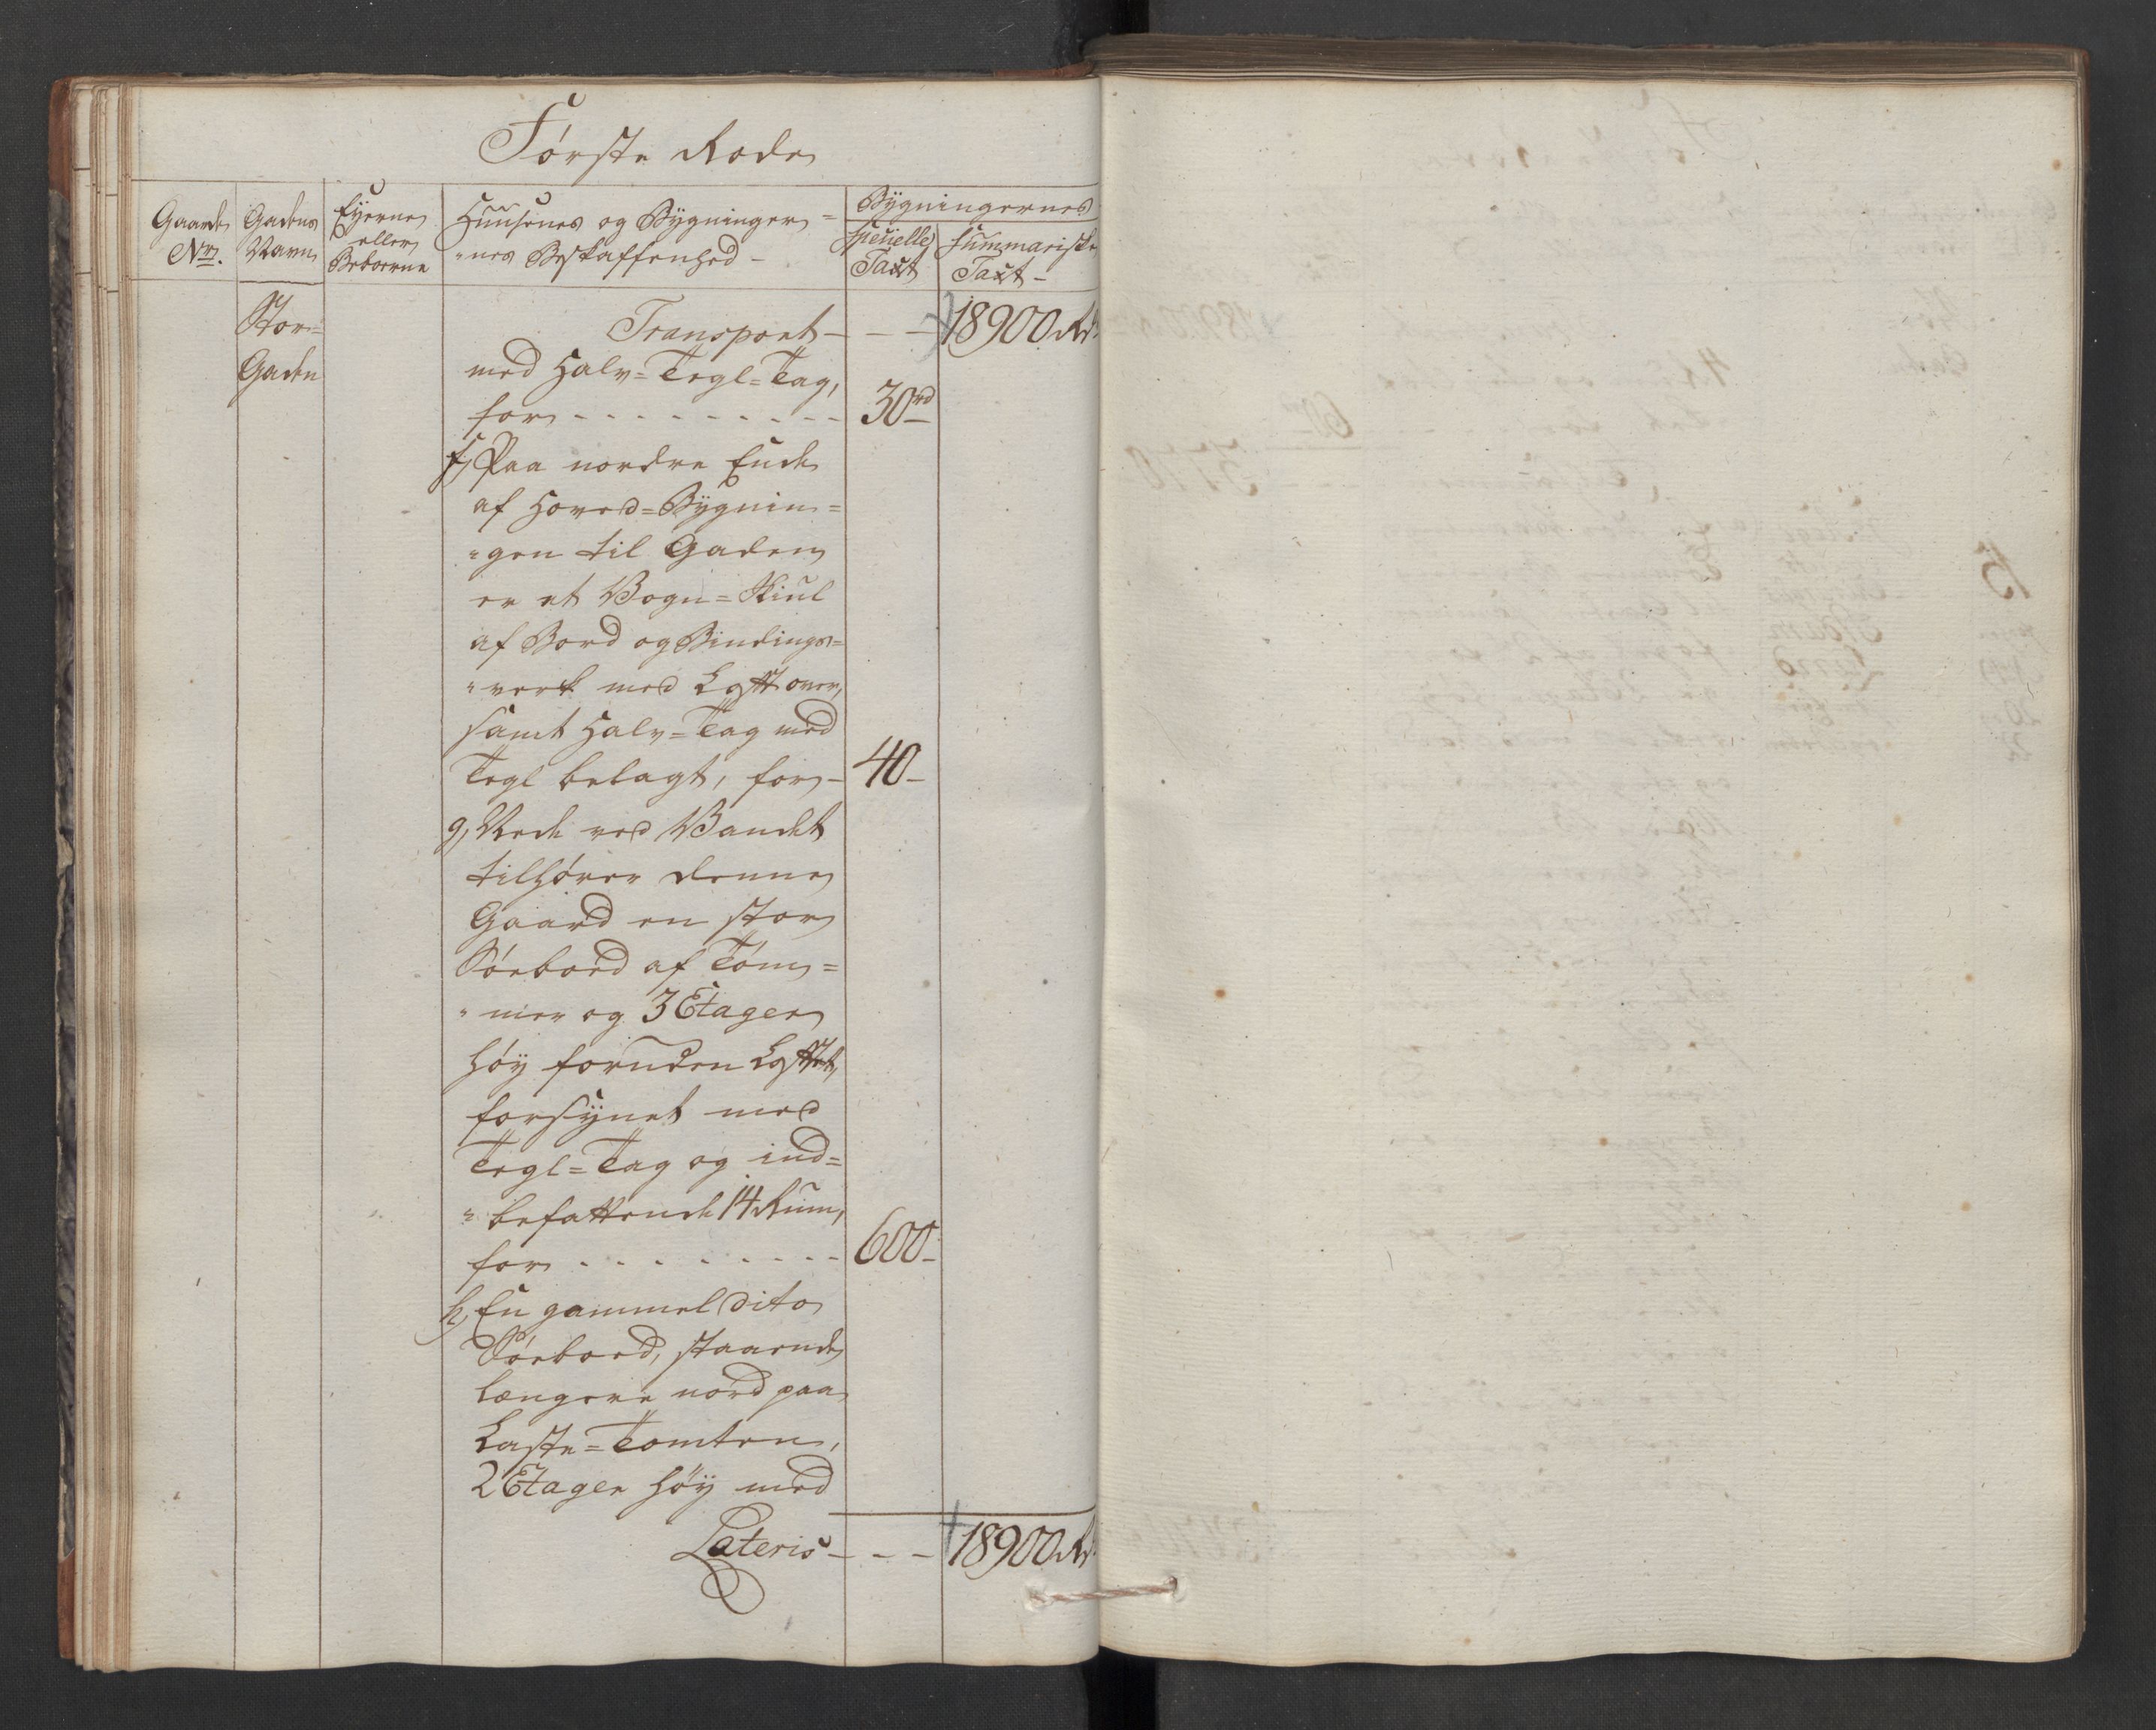 Første Rode
Gaardens Nr.
Gadens Navn
Eyerne eller Beboerne
Huusenes og Bygninger=
"nes Beskaffenhed -
Bygningernes
specielle Taxt
summariske Taxt -
Stor=
Gaden
Transport - - - 18900 Rd.
med Halv=Tegl=Tag,
for - - - - - - - - - 30rd -
f, Paa nordre Ende
af Hoved=Bygnin=
"gen til Gaden
er et Vogn=Skiul
af Bord og Bindings=
"verk med Loft over,
samt Halv=Tag med
Tegl belagt, for - 40 -
g, Nede ved Vandet
tilhører denne
Gaard en stor
Søebord af Tøm=
"mer og 3 Etager
høy foruden Loftet,
forsynet med
Tegl=Tag og ind=
"befattende 14 Rum,
for - - - - - - - - 600 -
h, En gammel dito
Søebord, staaende
længere nord paa
Laste=Tomten,
2 Etager høy med
Lateris - - - 18900 Rd.